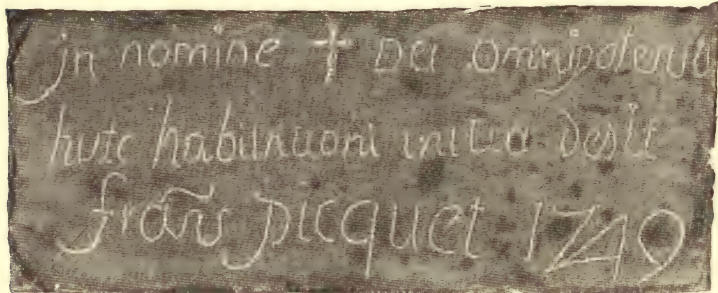 in nomine † Dei omnipotentis
huic habitationi initia dedit
frañs picquet 1749